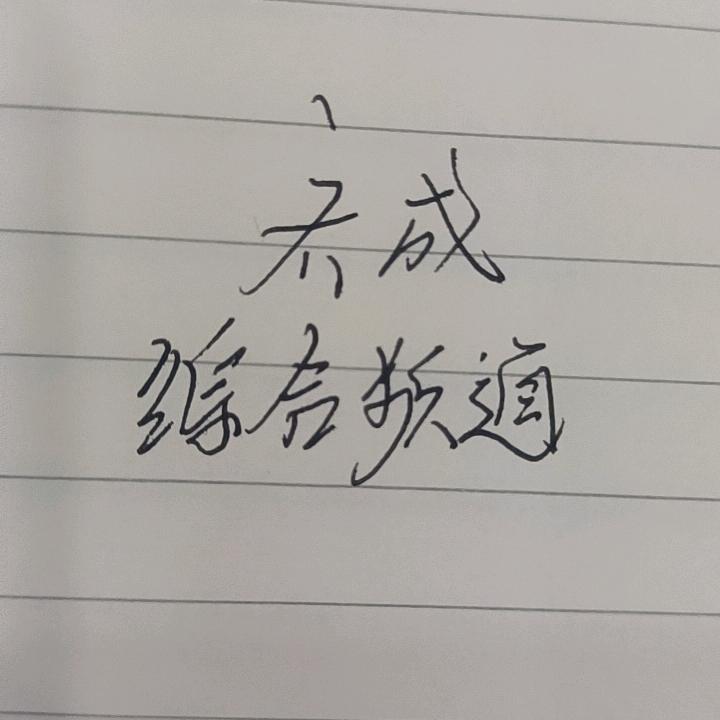 成
综合频道